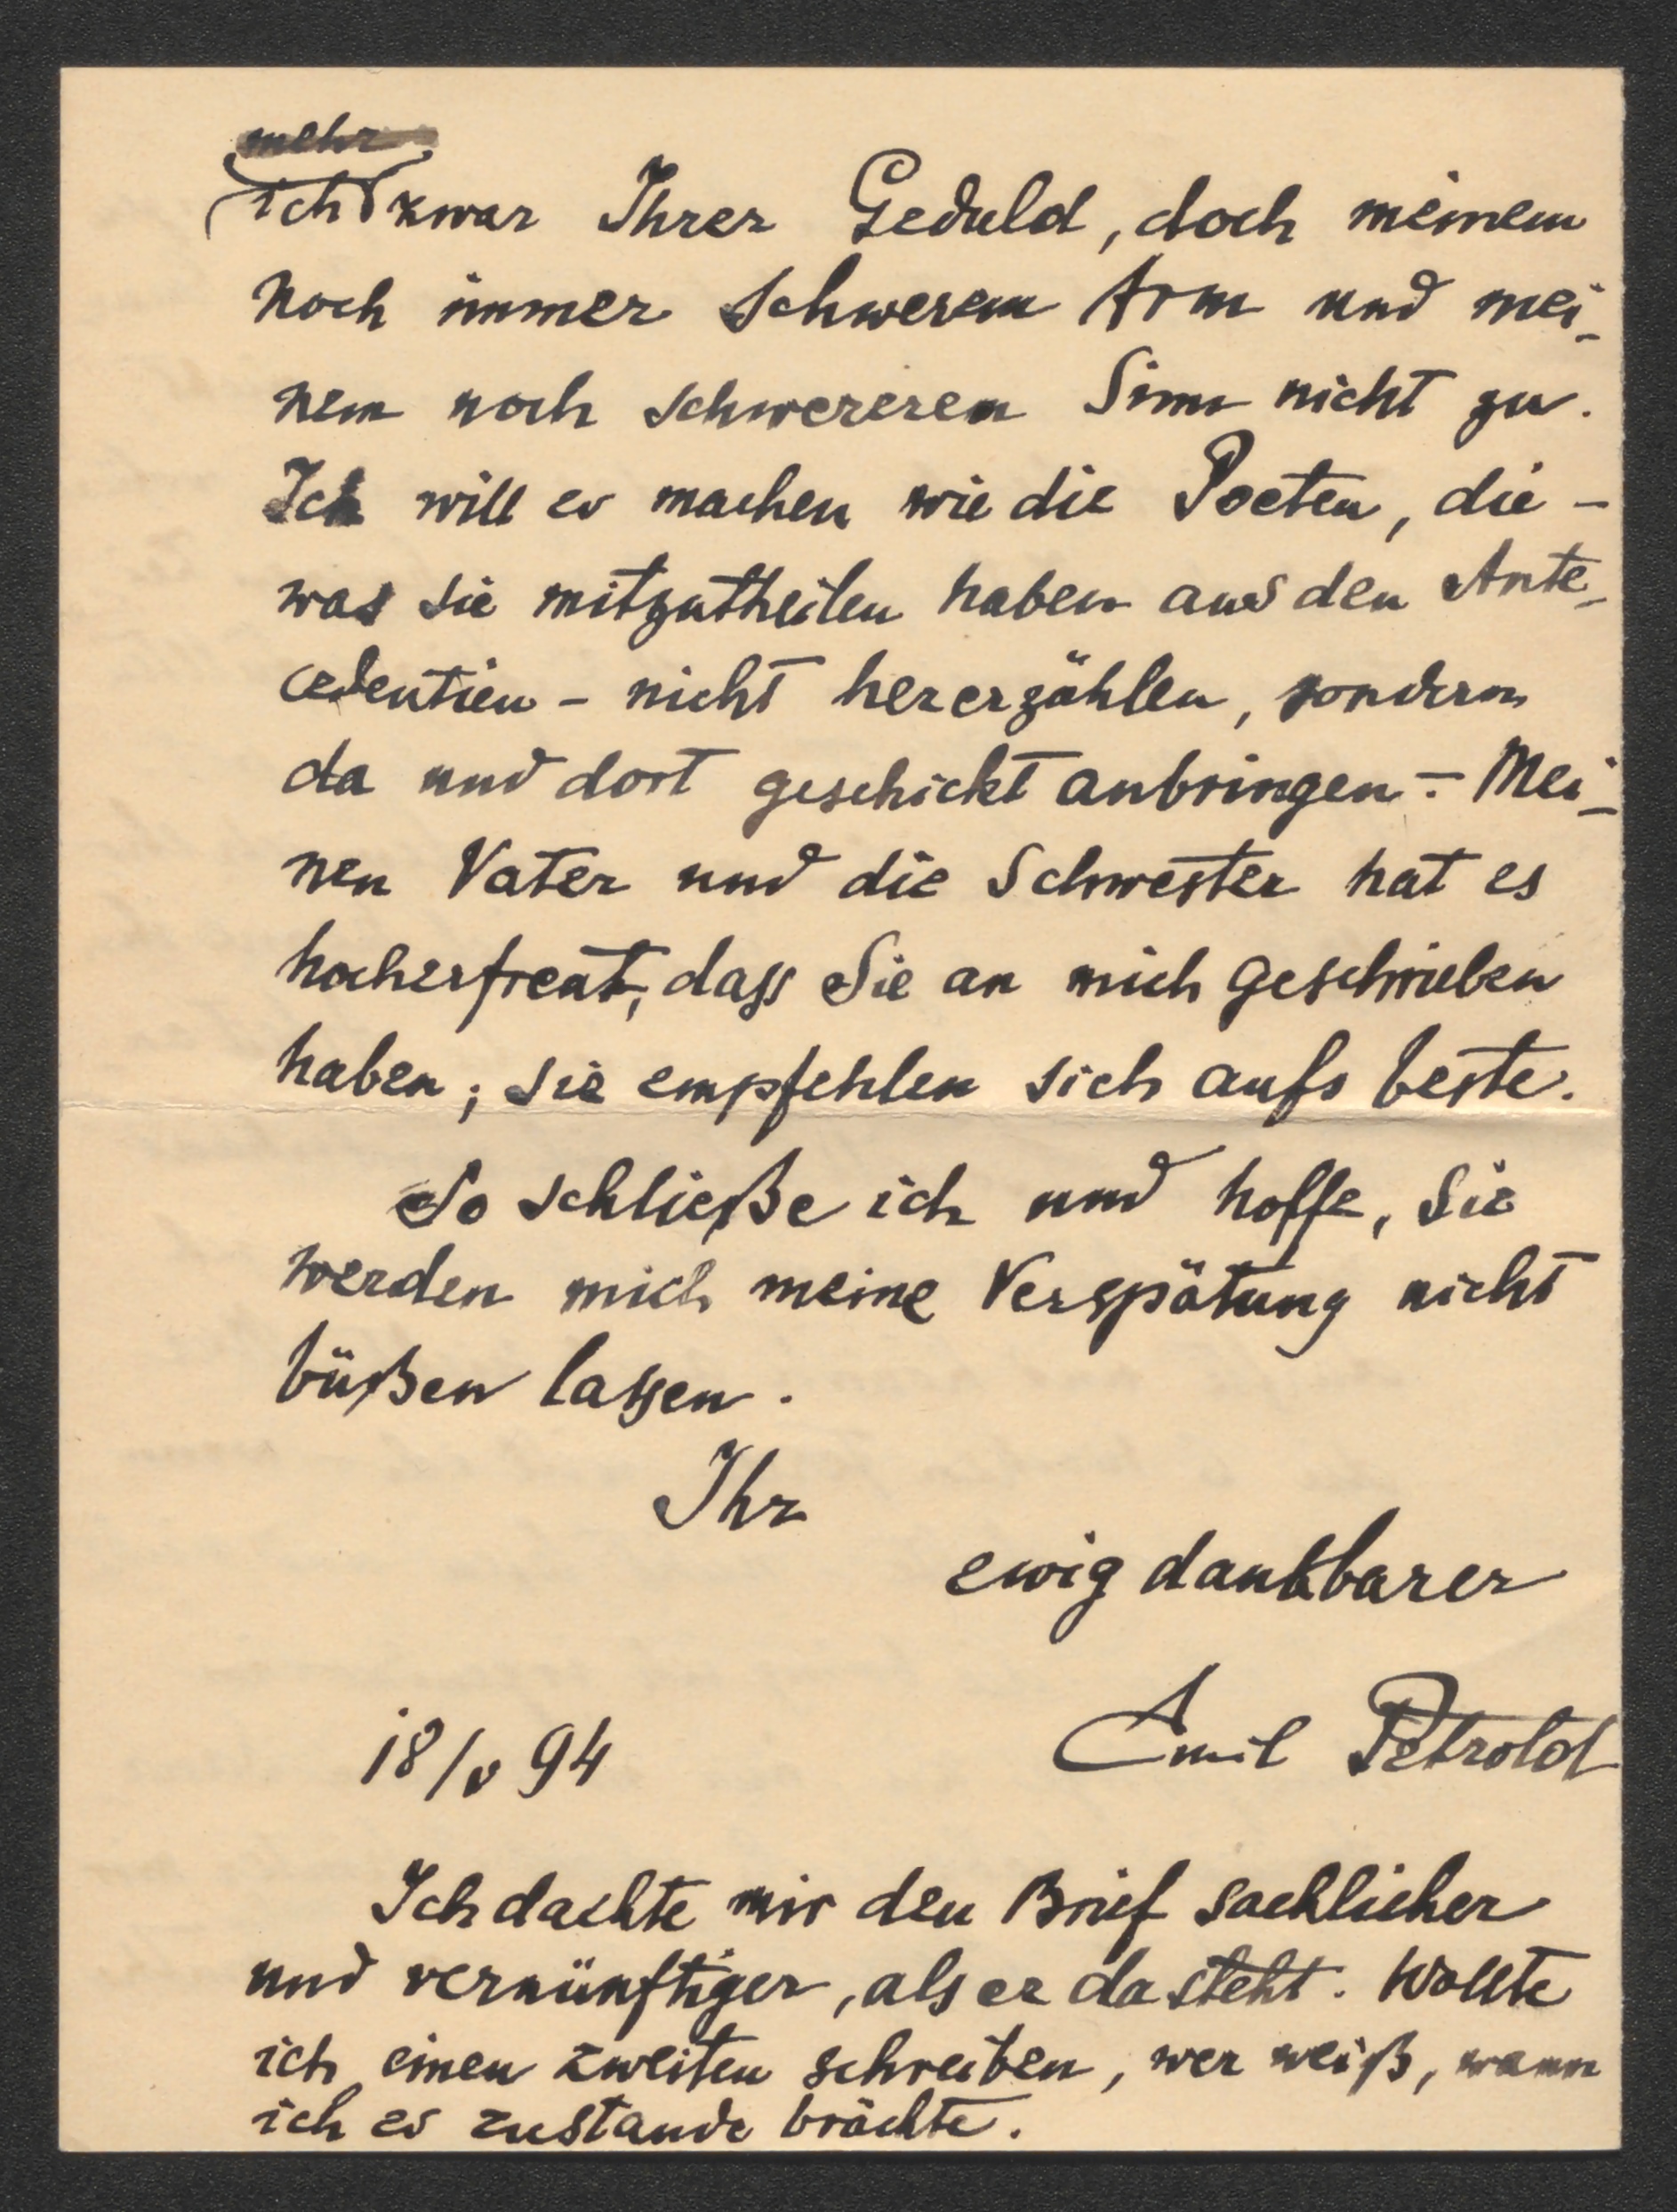 mehr
ich zwar Ihrer Geduld, doch meinem
noch immer schwerem Arm und mei-
nem noch schwereren Sinn nicht zu.
Ich will es machen wie die Poeten, die –
was sie mitzutheilen haben aus den Ante-
cedentien – nicht hererzählen, sondern
da und dort geschickt anbringen. – Mei-
nen Vater und die Schwester hat es
hocherfreut, dass Sie an mich geschrieben
haben; sie empfehlen sich aufs beste.
So schließe ich und hoffe, Sie
werden mich meine Verspätung nicht
büßen lassen.
Ihr
ewig dankbarer
Emil Petzold
18/V 94
Ich dachte mir den Brief sachlicher
und vernünftiger, als er da steht. Wollte
ich einen zweiten schreiben, wer weiß, wann
ich es zustande brächte.